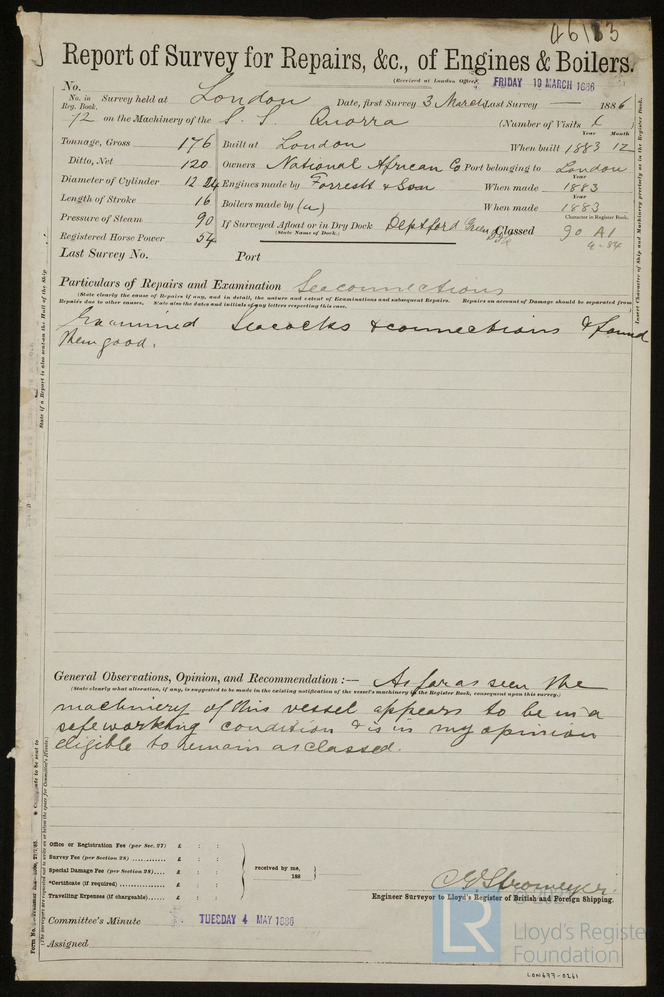 Report of Survey for Repairs, &c., of Engines & Boilers.
(Received at London Office, FRIDAY 19 MARCH 1886
No.
No. in Reg. Book. Survey held at London Date, first Survey 3 March Last Survey — 1886
72 on the Machinery of the S. S. Quorra (Number of Visits 1
Tonnage, Gross 176 Built at London When built Year 1883 Month 12
Ditto, Net 120 Owners National African Co Port belonging to London
Diameter of Cylinder 12 24 Engines made by Forrestt & Son When made Year 1883
Length of Stroke 16 Boilers made by (a) When made Year 1883
Pressure of Steam 90 If Surveyed Afloat or in Dry Dock Deptford Green Classed Character in Register Book. 90 A1
(State Name of Dock.)
Registered Horse Power 54 4-84
Last Survey No. Port
Particulars of Repairs and Examination Seaconnections
(State clearly the cause of Repairs if any, and in detail, the nature and extent of Examinations and subsequent Repairs. Repairs on account of Damage should be separated from
Repairs due to other causes. State also the dates and initials of any letters respecting this case.
Examined Seacocks & connections & found
them good.
General Observations, Opinion, and Recommendation :— As far as seen the
(State clearly what alteration, if any, is suggested to be made in the existing notification of the vessel's machinery in the Register Book, consequent upon this survey.)
machinery of this vessel appears to be in a
safe working condition & is in my opinion
eligible to remain as classed.
Office or Registration Fee (per Sec. 27) £ : :
Survey Fee (per Section 28) £ : :
Special Damage Fee (per Section 28) £ : :
received by me,
188
*Certificate (if required) £ : :
Travelling Expenses (if chargeable) £ : :
C E Stromeyer.
Engineer Surveyor to Lloyd's Register of British and Foreign Shipping.
Committee's Minute TUESDAY 4 MAY 1886
Assigned
LR
Lloyd's Register
Foundation
LON677-0261